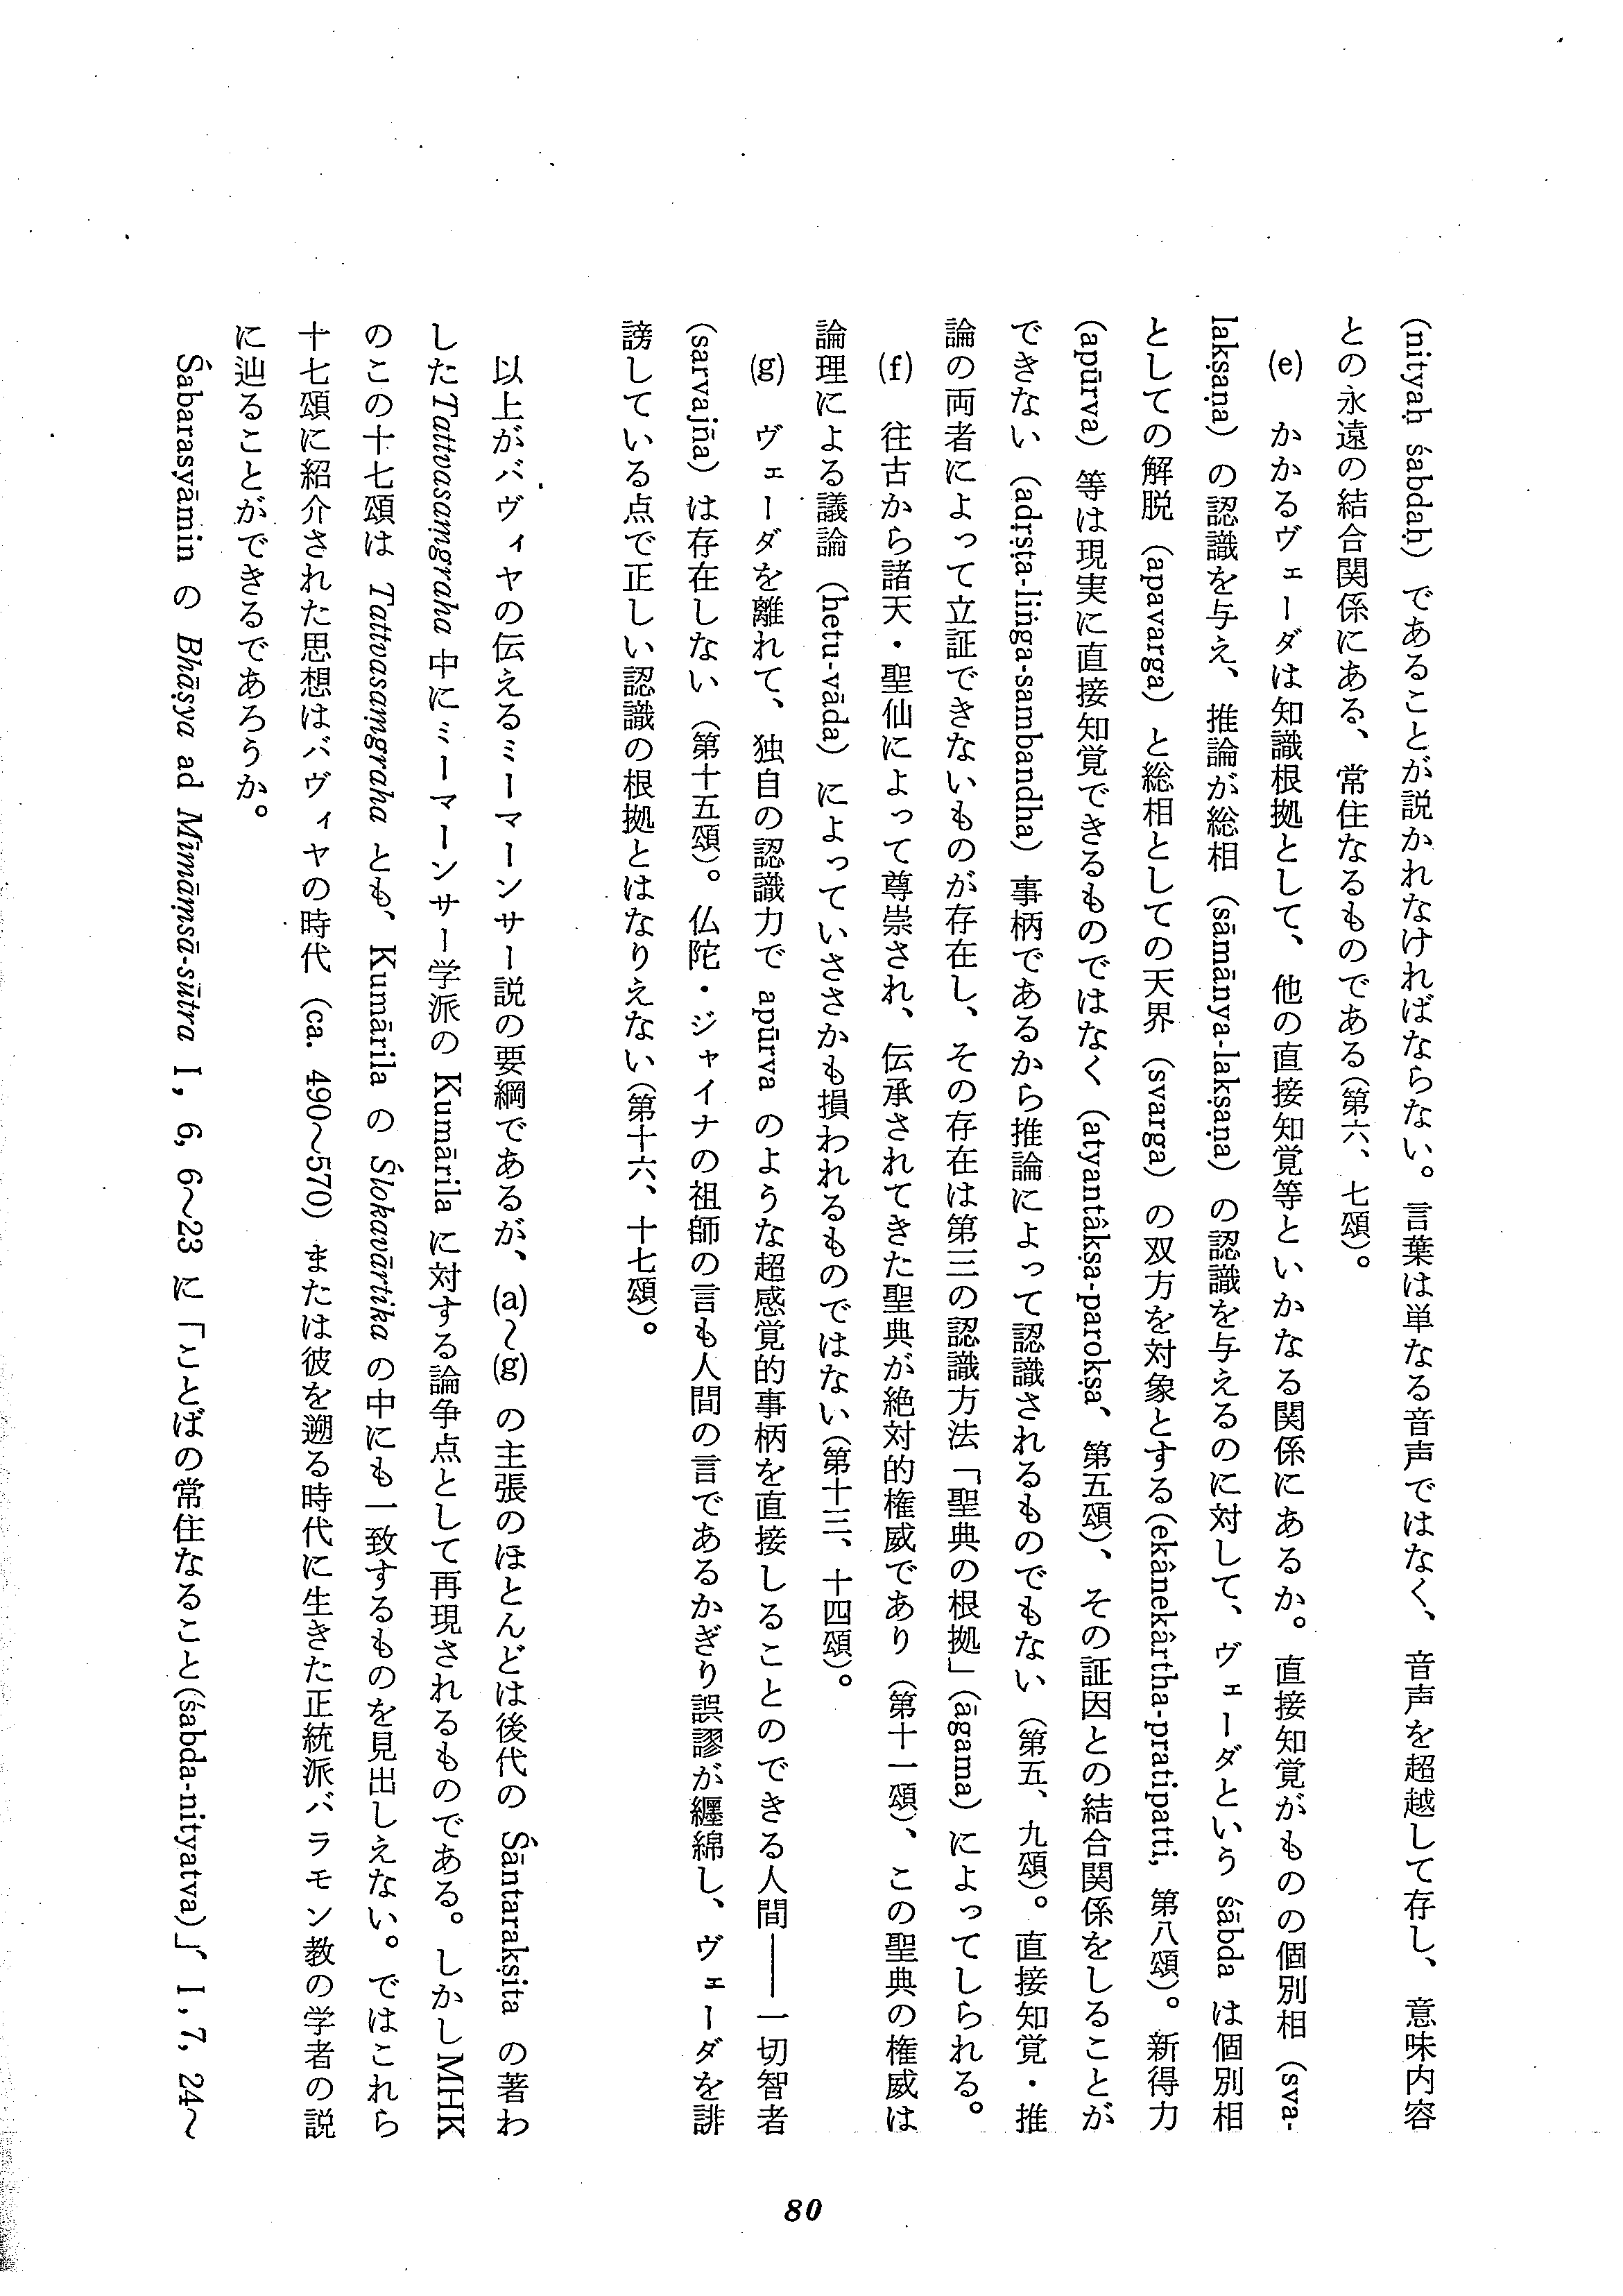 (nityaḥ śabdaḥ) であることが説かれなければならない。言葉は単なる音声ではなく、音声を超越して存し、意味内容
との永遠の結合関係にある、常住なるものである(第六、七頌)。
(e) かかるヴェーダは知識根拠として、他の直接知覚等といかなる関係にあるか。直接知覚がものの個別相 (sva-
lakṣaṇa) の認識を与え、推論が総相 (sāmānya-lakṣaṇa) の認識を与えるのに対して、ヴェーダという śābda は個別相
としての解脱 (apavarga) と総相としての天界 (svarga) の双方を対象とする(ekânekârtha-pratipatti, 第八頌)。新得力
(apūrva) 等は現実に直接知覚できるものではなく (atyantâkṣa-parokṣa、第五頌)、その証因との結合関係をしることが
できない (adṛṣṭa-liṅga-sambandha) 事柄であるから推論によって認識されるものでもない (第五、九頌)。直接知覚・推
論の両者によって立証できないものが存在し、その存在は第三の認識方法「聖典の根拠」(āgama) によってしられる。
(f) 往古から諸天・聖仙によって尊崇され、伝承されてきた聖典が絶対的権威であり (第十一頌)、この聖典の権威は
論理による議論 (hetu-vāda) によっていささかも損われるものではない(第十三、十四頌)。
(g) ヴェーダを離れて、独自の認識力で apūrva のような超感覚的事柄を直接しることのできる人間——一切智者
(sarvajña) は存在しない (第十五頌)。仏陀・ジャイナの祖師の言も人間の言であるかぎり誤謬が纒綿し、ヴェーダを誹
謗している点で正しい認識の根拠とはなりえない(第十六、十七頌)。
以上がバヴィヤの伝えるミーマーンサー説の要綱であるが、(a)〜(g) の主張のほとんどは後代の Śāntarakṣita の著わ
した Tattvasaṃgraha 中にミーマーンサー学派の Kumārila に対する論争点として再現されるものである。しかしMHK
のこの十七頌は Tattvasaṃgraha とも、Kumārila の Ślokavārtika の中にも一致するものを見出しえない。ではこれら
十七頌に紹介された思想はバヴィヤの時代 (ca. 490〜570) または彼を遡る時代に生きた正統派バラモン教の学者の説
に辿ることができるであろうか。
Śabarasyāmin の Bhāṣya ad Mīmāṃsā-sūtra I, 6, 6〜23 に「ことばの常住なること(śabda-nityatva)」、I, 7, 24〜
80